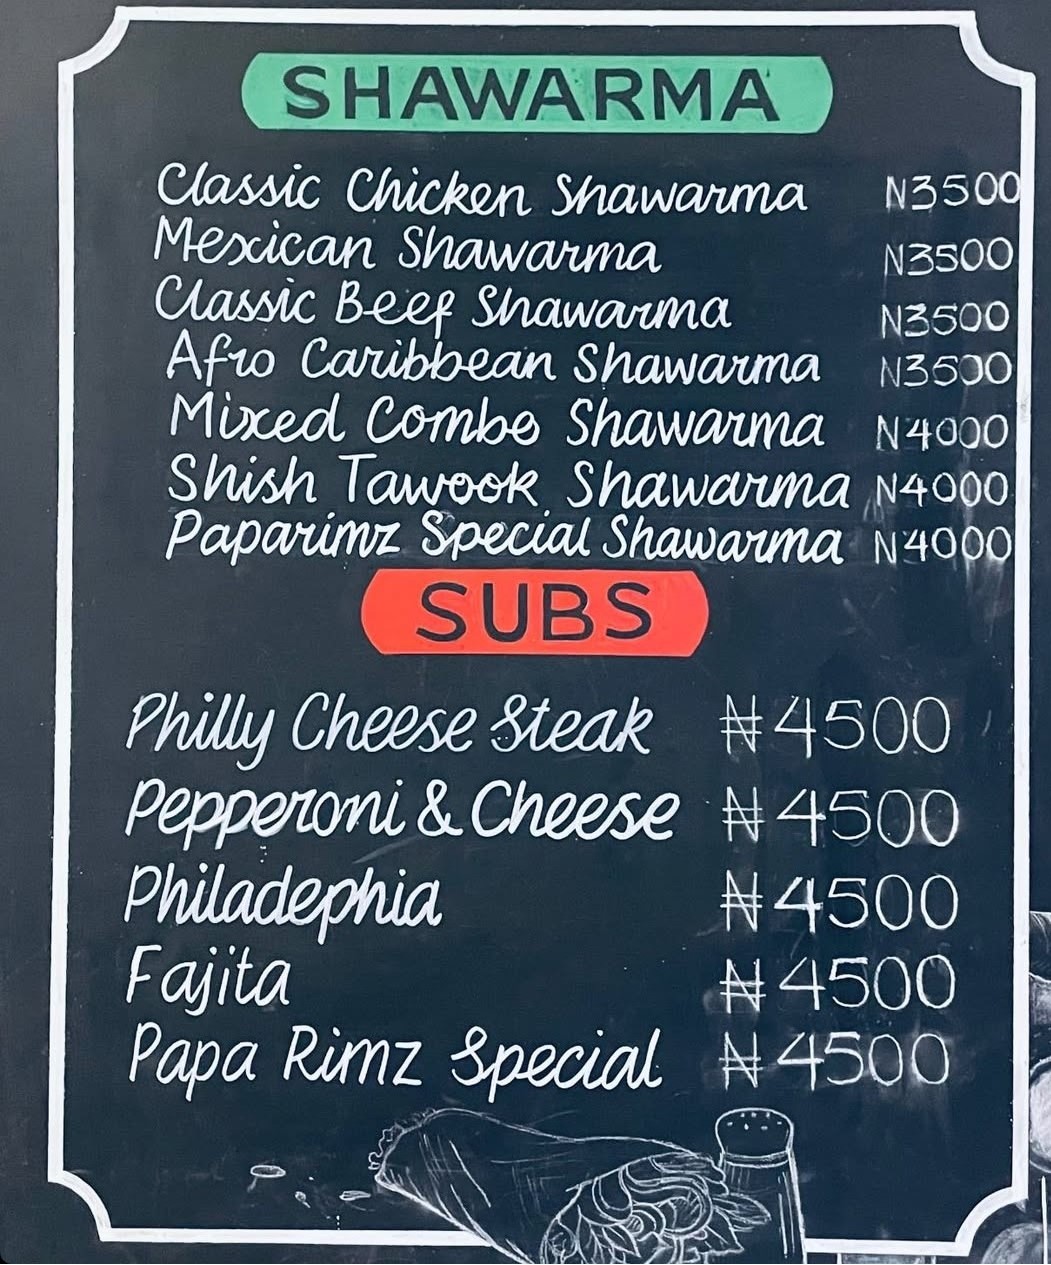 SHAWARMA
Classic Chicken Shawarma N3500
Mexican Shawarma N3500
Classic Beef Shawarma N3500
Afro Caribbean Shawarma N3500
Mixed Combo Shawarma N4000
Shish Tawook Shawarma N4000
Paparimz Special Shawarma N4000
SUBS
Philly Cheese Steak ₦4500
Pepperoni & Cheese ₦4500
Philadephia ₦4500
Fajita ₦4500
Papa Rimz Special ₦4500